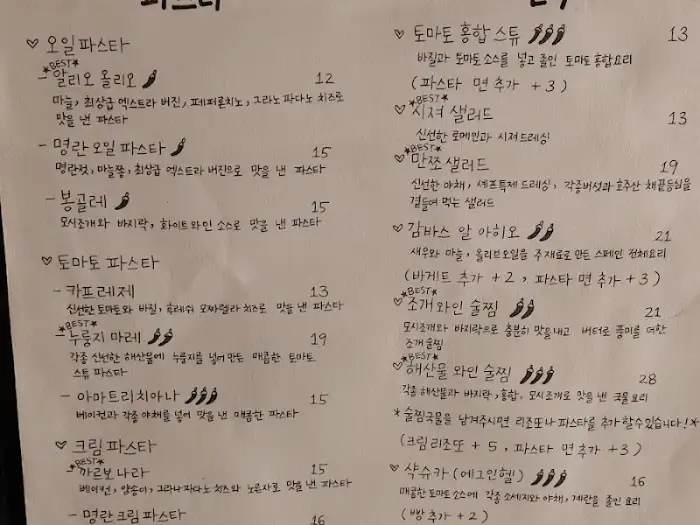 파스타
♡ 오일 파스타
*BEST*
- 알리오 올리오 12
마늘, 최상급 엑스트라 버진, 페페론치노, 그라노 파다노 치즈로
맛을 낸 파스타
- 명란 오일 파스타 15
명란젓, 마늘쫑, 최상급 엑스트라 버진으로 맛을 낸 파스타
- 봉골레 15
모시조개와 바지락, 화이트와인 소스로 맛을 낸 파스타
♡ 토마토 파스타
- 카프레제 13
신선한 토마토와 바질, 후레쉬 모짜렐라 치즈로 맛을 낸 파스타
*BEST*
- 누룽지 마레 19
각종 신선한 해산물에 누룽지를 넣어 만든 매콤한 토마토
스튜 파스타
- 아마트리치아나 15
베이컨과 각종 야채를 넣어 맛을 낸 매콤한 파스타
♡ 크림 파스타
*BEST*
- 까르보나라 15
베이컨, 양송이, 그라나파다노 치즈와 노른자로 맛을 낸 파스타
- 명란크림 파스타 16
♡ 토마토 홍합 스튜 13
바질과 토마토 소스를 넣고 졸인 토마토 홍합요리
(파스타 면 추가 +3)
*BEST*
♡ 시져 샐러드 13
신선한 로메인과 시져드레싱
*BEST*
♡ 만쪼 샐러드 19
신선한 야채, 셰프특제 드레싱, 각종버섯과 호주산 채끝등심을
곁들여 먹는 샐러드
♡ 감바스 알 아히오 21
새우와 마늘, 올리브오일을 주재료로 만든 스페인 전채요리
(바게트 추가 +2, 파스타 면 추가 +3)
*BEST*
♡ 조개 와인 술찜 21
모시조개와 바지락으로 충분히 맛을내고 버터로 풍미를 더한
조개술찜
*BEST*
♡ 해산물 와인 술찜 28
각종 해산물과 바지락, 홍합, 모시조개로 맛을 낸 국물요리
*술찜국물을 남겨주시면 리조또나 파스타를 추가 할 수 있습니다!*
(크림 리조또 +5, 파스타 면 추가 +3)
♡ 샥슈카 (에그인헬) 16
매콤한 토마토 소스에 각종 소세지와 야채, 계란을 졸인 요리
(빵 추가 +2)